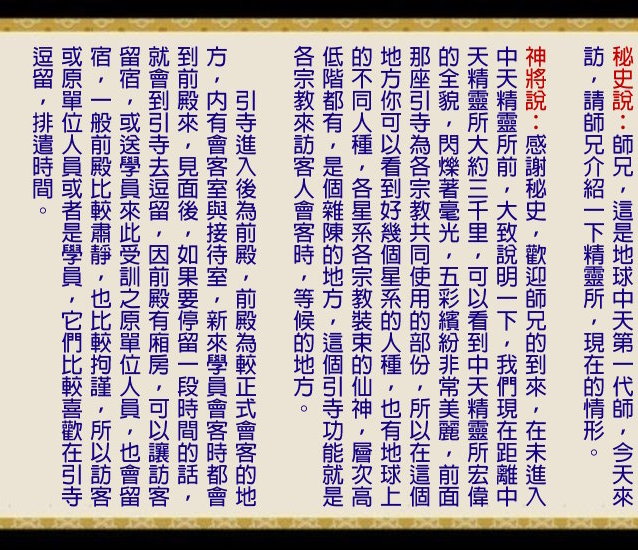 秘史說：師兄，這是地球中天第一代師，今天來
訪，請師兄介紹一下精靈所，現在的情形。
神將說：感謝秘史，歡迎師兄的到來，在未進入
中天精靈所前，大致說明一下，我們現在距離中
天精靈所大約三千里，可以看到中天精靈所宏偉
的全貌，閃爍著毫光，五彩繽紛非常美麗，前面
那座引寺為各宗教共同使用的部份，所以在這個
地方你可以看到好幾個星系的人種，也有地球上
的不同人種，各星系各宗教裝束的仙神，層次高
低階都有，是個雜陳的地方，這個引寺功能就是
各宗教來訪客人會客時，等候的地方。
引寺進入後為前殿，前殿為較正式會客的地
方，內有會客室與接待室，新來學員會客時都會
到前殿來，見面後，如果要停留一段時間的話，
就會到引寺去逗留，因前殿有廂房，可以讓訪客
留宿，或送學員來此受訓之原單位人員，也會留
宿，一般前殿比較肅靜，也比較拘謹，所以訪客
或原單位人員或者是學員，它們比較喜歡在引寺
逗留，排遣時間。